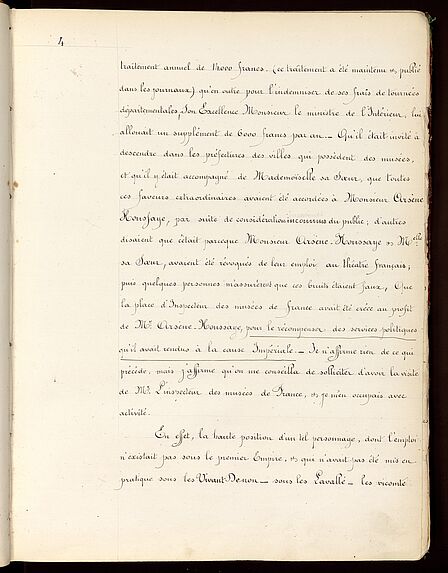 4
traitement annuel de 12000 francs. (ce traitement a été maintenu et publié
dans les journaux) qu'en outre pour l'indemniser de ses frais de tournées
départementales, Son Excellence Monsieur le ministre de l'Intérieur, lui
allouait un supplément de 6000 francs par an. _ Qu'il était invité à
descendre dans les préfectures des villes qui possèdent des musées,
et qu'il y était accompagné de Mademoiselle sa Sœur, que toutes
ces faveurs extraordinaires avaient été accordées à Monsieur Arsène
Houssaye, par suite de considération inconnus du public; d'autres
disaient que c'était parceque Monsieur Arsène-Houssaye et Melle
sa Sœur, avaient été révoqués de leur emploi au théâtre français;
puis quelques personnes m'assurèrent que ces bruits étaient faux, Que
la place d'Inspecteur des musées de france avait été créée au profit
de Mr. Arsène-Houssaye, pour le récompenser des services politiques
qu'il avait rendus à la cause Impériale. _ Je n'affirme rien de ce qui
précède, mais j'affirme qu'on me conseilla de solliciter d'avoir la visite
de Mr. l'inspecteur des musées de France, et je m'en occupais avec
activité.
En effet, la haute position d'un tel personnage, dont l'emploi
n'existait pas sous le premier Empire, et qui n'avait pas été mis en
pratique sous les Vivant Denon _ sous les Lavallé _ les vicomte